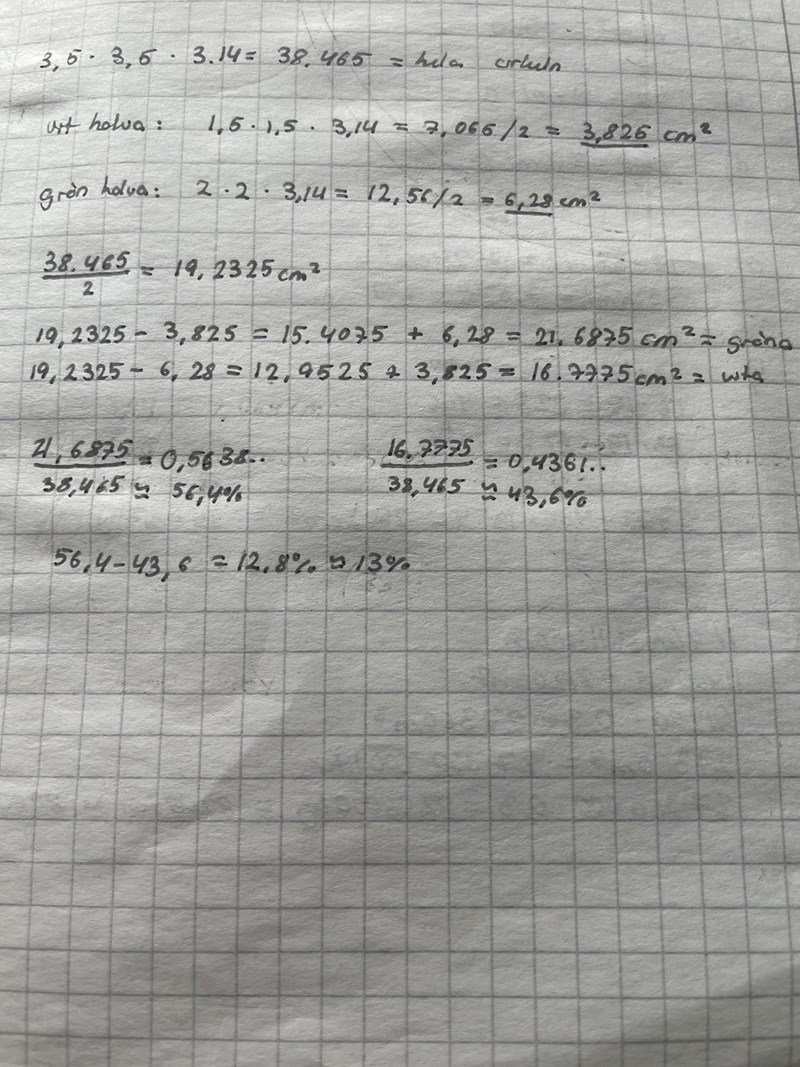 3,5 · 3,5 · 3.14 = 38.465 = hela cirkeln
vit halva: 1,5 · 1,5 · 3,14 = 7,065/2 = 3,825 cm²
grön halva: 2 · 2 · 3,14 = 12,56/2 = 6,28 cm²
38.465
2
= 19,2325 cm²
19,2325 - 3,825 = 15.4075 + 6,28 = 21.6875 cm² = gröna
19,2325 - 6,28 = 12,9525 + 3,825 = 16.7775 cm² = vita
21,6875 = 0,5638.. 16,7775 = 0,4361..
38,465 ≈ 56,4% 38,465 ≈ 43,6%
56,4 - 43,6 = 12,8% ≈ 13%